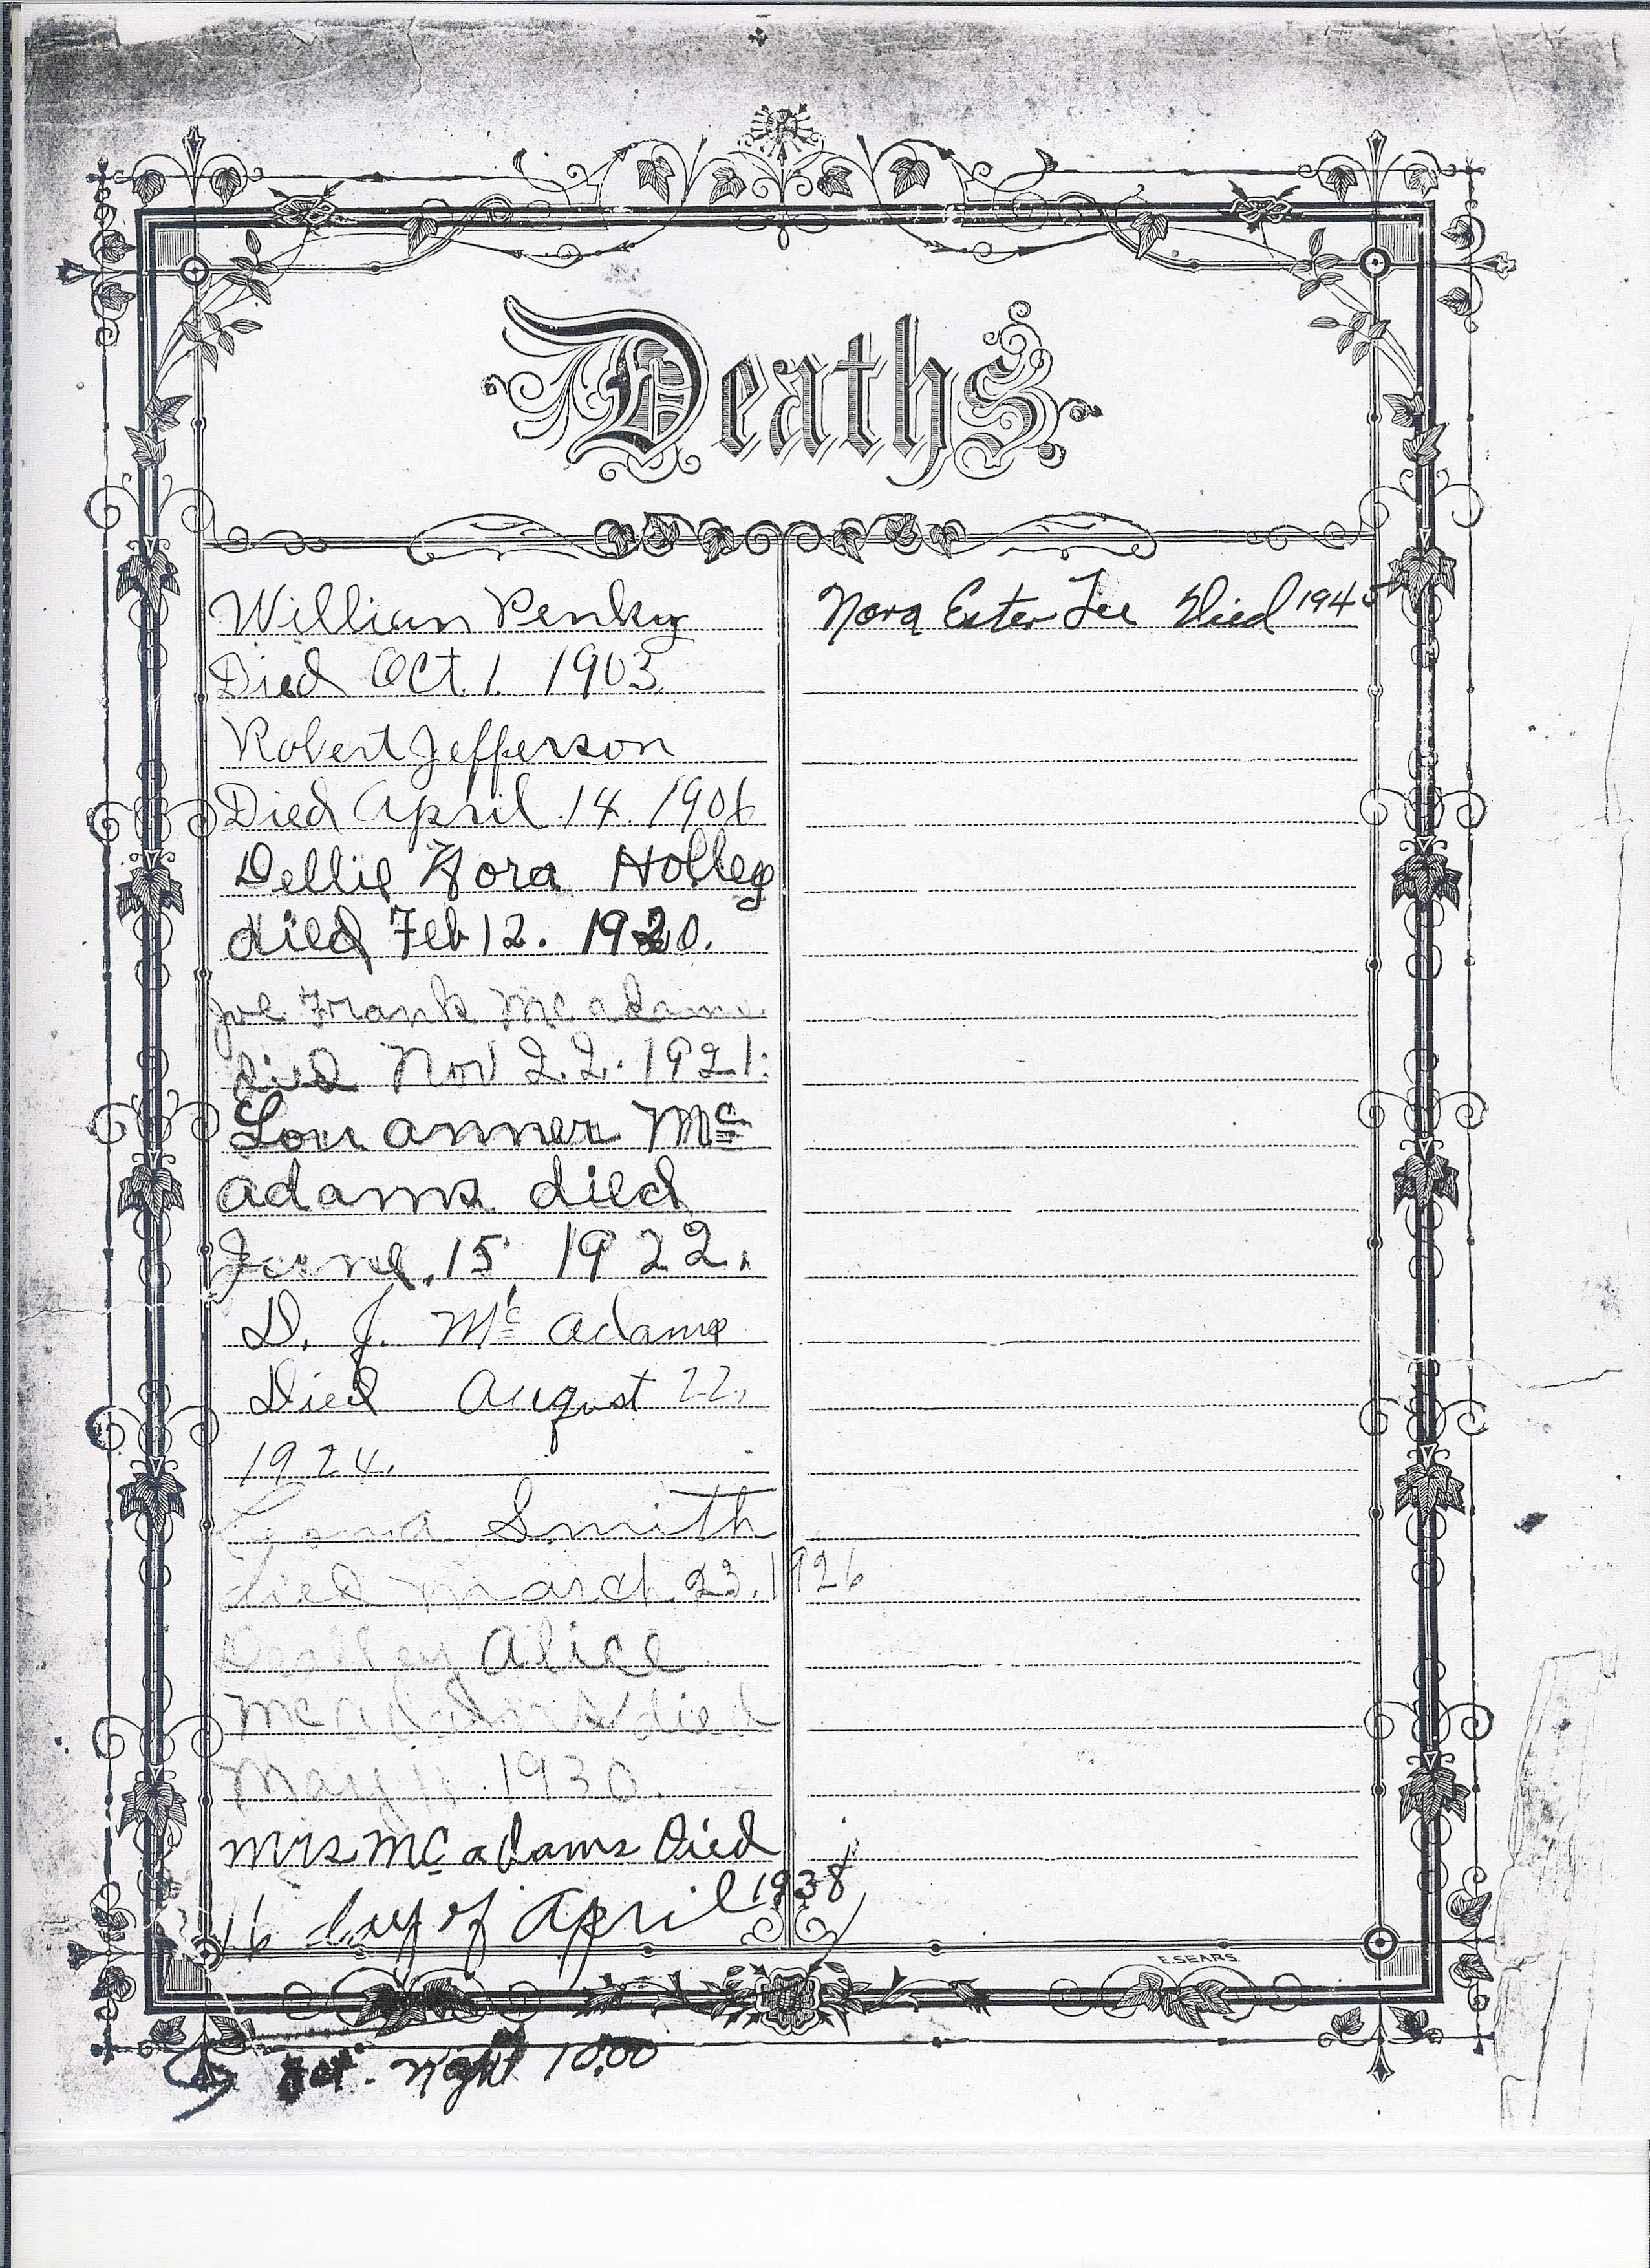 Deaths
William Penky
Died Oct. 1. 1903
Robert Jefferson
Died April. 14. 1906
Dellie Nora Holley
died Feb 12. 1920.
Joe Frank McAdams
died Nov 22. 1921.
Lou anner Mc
adams died
June. 15, 1922.
D. J. Mc Adams
Died August 22,
1924.
Smith
died March. 23. 1926
Alice
died
May 11. 1930.
Mrs McAdams Died
16 day of April 1938
Night 10:00
Nora Ester Lee Died 1945
E.SEARS